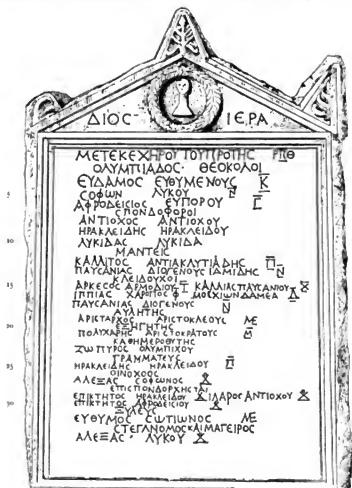 ΔΙΟΣ ΙΕΡΑ
ΜΕΤΕΚΕΧΗΡΟΥ ΤΟΥ ΠΡΟ ΤΗΣ
ΟΛΥΜΠΙΑΔΟΣ· ΘΕΟΚΟΛΟΙ
ΕΥΔΑΜΟΣ ΕΥΘΥΜΕΝΟΥΣ Κ
5 ΣΟΦΩΝ ΛΥΚΟΥ Ν
ΑΦΡΟΔΕΙΣΙΟΣ ΕΥΠΟΡΟΥ
ΣΠΟΝΔΟΦΟΡΟΙ
ΑΝΤΙΟΧΟΣ ΑΝΤΙΟΧΟΥ
ΗΡΑΚΛΕΙΔΗΣ ΗΡΑΚΛΕΙΔΟΥ
10 ΛΥΚΙΔΑΣ ΛΥΚΙΔΑ
ΜΑΝΤΕΙΣ
ΚΑΛΛΙΤΟΣ ΑΝΤΙΑ ΚΛΥΤΙΑΔΗΣ Π
ΠΑΥΣΑΝΙΑΣ ΔΙΟΓΕΝΟΥΣ ΙΑΜΙΔΗΣ Ν
ΚΛΕΙΔΟΥΧΟΙ
15 ΑΡΚΕΣΟΣ ΑΡΜΟΔΙΟΥ ΚΑΛΛΙΑΣ ΠΑΥΣΑΝΙΟΥ
ΙΠΠΙΑΣ ΧΑΡΟΠΟΣ ΜΟΣΧΙΩΝ ΔΑΜΕΑ
ΠΑΥΣΑΝΙΑΣ ΔΙΟΓΕΝΟΥΣ Ν
ΑΥΛΗΤΗΣ
ΑΡΙΣΤΑΡΧΟΣ ΑΡΙΣΤΟΚΛΕΟΥΣ ΜΕ
20 ΕΞΗΓΗΤΗΣ
ΠΟΛΥΧΑΡΗΣ ΑΡΙΣΤΟΚΡΑΤΟΥΣ
ΚΑΘΗΜΕΡΟΘΥΤΗΣ
ΖΩΠΥΡΟΣ ΟΛΥΜΠΙΧΟΥ
ΓΡΑΜΜΑΤΕΥΣ
25 ΗΡΑΚΛΕΙΔΗΣ ΗΡΑΚΛΕΙΔΟΥ Π
ΟΙΝΟΧΟΟΣ
ΑΛΕΞΑΣ ΣΟΦΩΝΟΣ
ΕΠΙΣΠΟΝΔΟΡΧΗΣΤΑΙ
ΕΠΙΚΤΗΤΟΣ ΗΡΑΚΛΕΙΔΟΥ ΙΛΑΡΟΣ ΑΝΤΙΟΧΟΥ
30 ΕΠΙΚΤΗΤΟΣ ΑΦΡΟΔΕΙΣΙΟΥ
ΞΥΛΕΥΣ
ΕΥΘΥΜΟΣ ΣΩΤΙΩΝΟΣ ΜΕ
ΣΤΕΓΝΟΜΟΣ ΚΑΙ ΜΑΓΕΙΡΟΣ
ΑΛΕΞΑΣ· ΛΥΚΟΥ